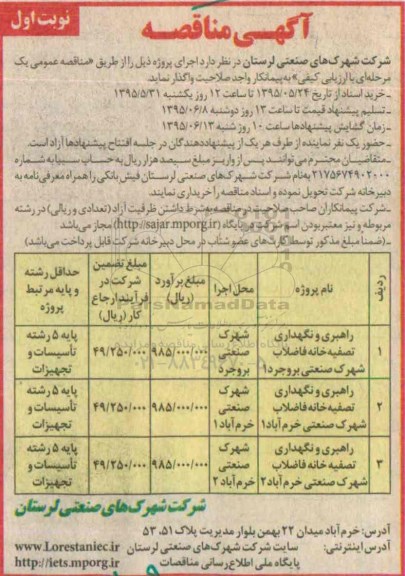 آگهی مناقصه
نوبت اول
شرکت شهرک‌های صنعتی لرستان در نظر دارد اجرای پروژه ذیل را از طریق «مناقصه عمومی یک
مرحله‌ای با ارزیابی کیفی» به پیمانکار واجد صلاحیت واگذار نماید.
- خرید اسناد از تاریخ ۱۳۹۵/۰۵/۲۴ تا ساعت ۱۲ روز یکشنبه ۱۳۹۵/۵/۳۱
- تسلیم پیشنهاد قیمت تا ساعت ۱۳ روز دوشنبه ۱۳۹۵/۰۶/۸
- زمان گشایش پیشنهادها ساعت ۱۰ روز شنبه ۱۳۹۵/۰۶/۱۳
- حضور یک نفر نماینده از طرف هر یک از پیشنهاددهندگان در جلسه افتتاح پیشنهادها آزاد است.
- متقاضیان محترم می‌توانند پس از واریز مبلغ سیصد هزار ریال به حساب سیبا به شماره
۲۱۷۵۶۷۴۹۰۲۰۰۰ به نام شرکت شهرک‌های صنعتی لرستان فیش بانکی را همراه معرفی‌نامه به
دبیرخانه شرکت تحویل نموده و اسناد مناقصه را خریداری نمایند.
- شرکت پیمانکاران صاحب صلاحیت در مناقصه به شرط داشتن ظرفیت آزاد (تعدادی و ریالی) در رشته
مربوطه و نیز معتبر بودن اسم شرکت در پایگاه (http://sajar.mporg.ir) مجاز می‌باشد
- (ضمنا مبلغ مذکور توسط کارت‌های عضو شتاب در محل دبیرخانه شرکت قابل پرداخت می‌باشد)
ردیف | نام پروژه | محل اجرا | مبلغ برآورد (ریال) | مبلغ تضمین شرکت در فرآیند ارجاع کار (ریال) | حداقل رشته و پایه مرتبط پروژه
۱ | راهبری و نگهداری تصفیه خانه فاضلاب شهرک صنعتی بروجرد۱ | شهرک صنعتی بروجرد | ۹۸۵/۰۰۰/۰۰۰ | ۴۹/۲۵۰/۰۰۰ | پایه ۵ رشته تأسیسات و تجهیزات
۲ | راهبری و نگهداری تصفیه خانه فاضلاب شهرک صنعتی خرم آباد۱ | شهرک صنعتی خرم آباد۱ | ۹۸۵/۰۰۰/۰۰۰ | ۴۹/۲۵۰/۰۰۰ | پایه ۵ رشته تأسیسات و تجهیزات
۳ | راهبری و نگهداری تصفیه خانه فاضلاب شهرک صنعتی خرم آباد۲ | شهرک صنعتی خرم آباد۲ | ۹۸۵/۰۰۰/۰۰۰ | ۴۹/۲۵۰/۰۰۰ | پایه ۵ رشته تأسیسات و تجهیزات
شرکت شهرک‌های صنعتی لرستان
آدرس: خرم آباد میدان ۲۲ بهمن بلوار مدیریت پلاک ۵۱، ۵۳
آدرس اینترنتی: سایت شرکت شهرک‌های صنعتی لرستان www.Lorestaniec.ir
پایگاه ملی اطلاع‌رسانی مناقصات http://iets.mporg.ir